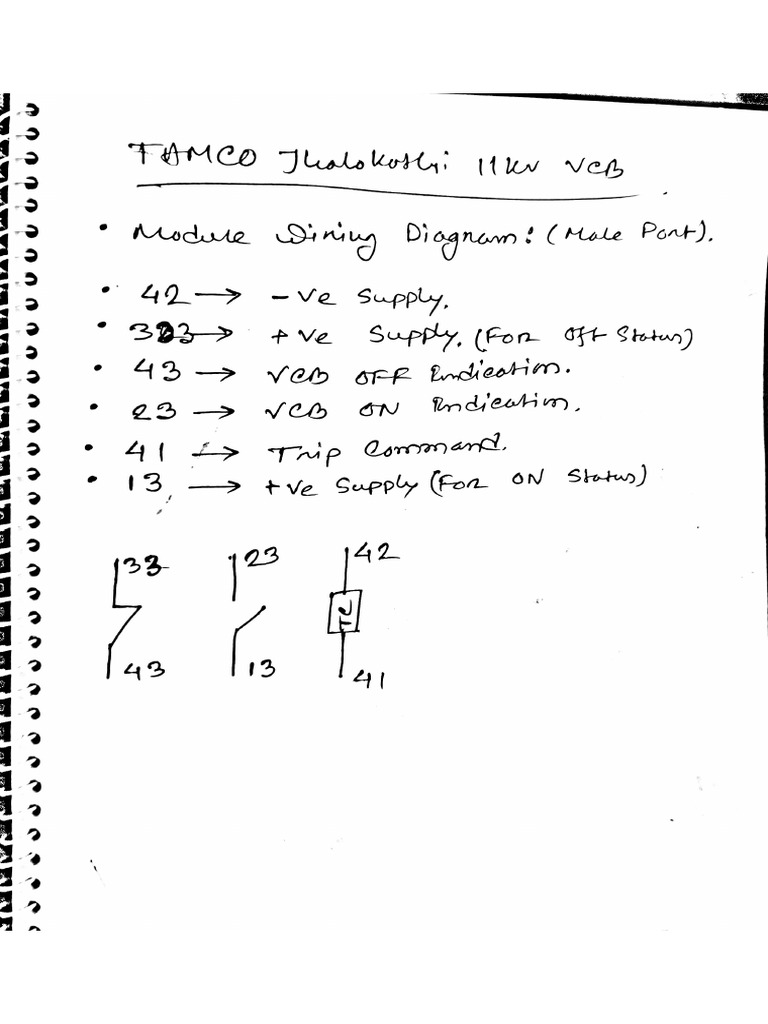 TAMCO Jhalokathi 11kv VCB
• Module Wiring Diagram: (Male Port).
• 42 → -ve Supply.
• 33 → +ve Supply. (For Off Status)
• 43 → VCB OFF Indication.
• 23 → VCB ON Indication.
• 41 → Trip Command.
• 13 → +ve Supply (For ON Status)
33 23 42
TC
43 13 41